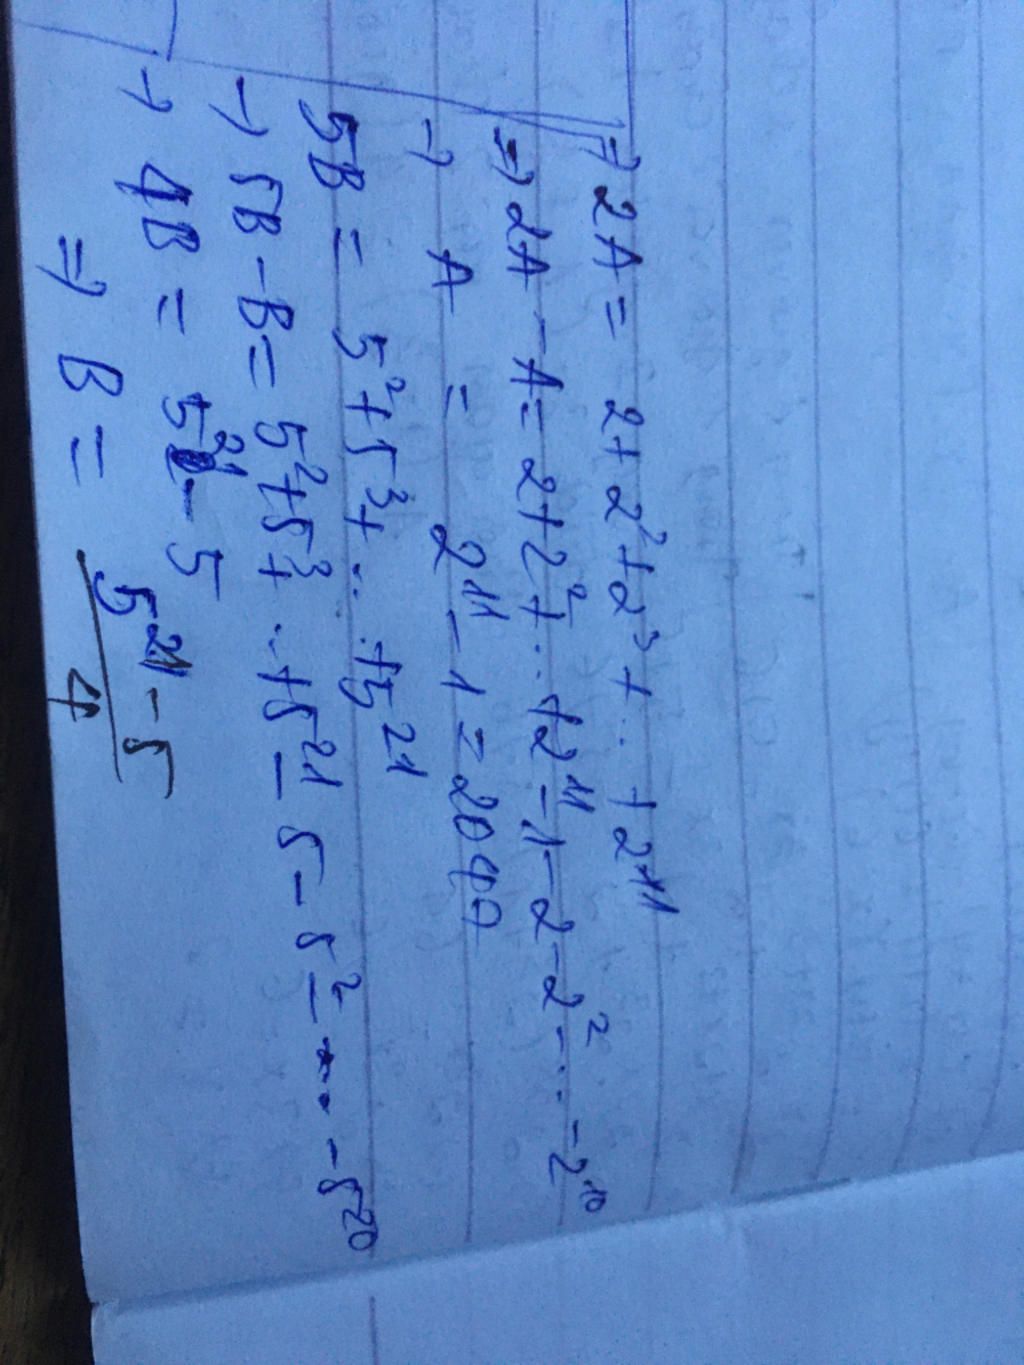 ⇒ 2A = 2 + 2² + 2³ + ... + 2¹¹
⇒ 2A - A = 2 + 2² + ... + 2¹¹ - 1 - 2 - 2² - ... - 2¹⁰
→ A = 2¹¹ - 1 = 2047
5B = 5² + 5³ + ... + 5²¹
→ 5B - B = 5² + 5³ + ... + 5²¹ - 5 - 5² - ... - 5²⁰
→ 4B = 5²¹ - 5
⇒ B = (5²¹ - 5)/4